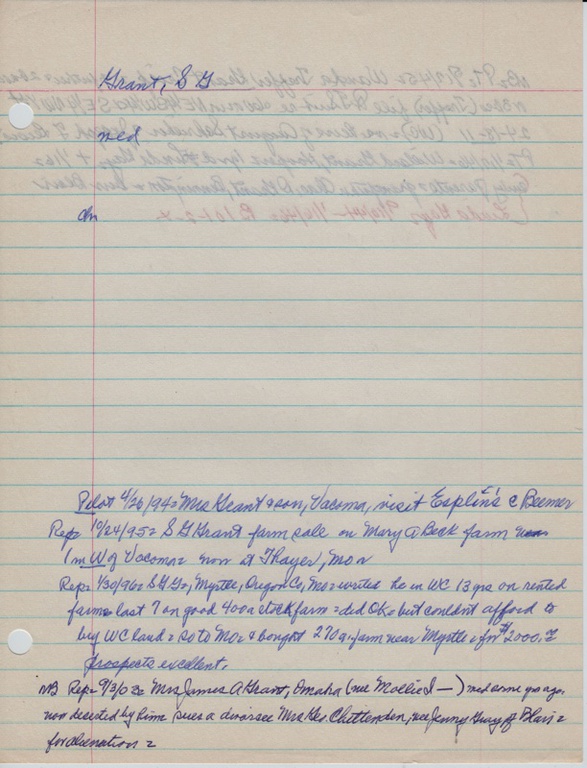 Grant, S G
med
ch
Pilot 4/26/94= Mrs Grant & son, Vacoma, visit Esplin's & Beemer
Rep= 10/24/95= S G Grant farm sale on Mary A Beck farm
1 m W of Vacoma= now at Thayer, Mo=
Rep= 1/30/96= S G G=, Myrtle, Oregon Co, Mo= writes he in WC 13 yrs on rented
farms= last 7 on good 400 a stock farm= did OK= but couldn't afford to
buy WC land= so to Mo= & bought 270 a farm near Myrtle= for $2000.=
prospects excellent.
NB Rep= 9/3/03= Mrs James A Grant, Omaha (nee Mollie d —) med some yrs ago,
now deserted by him= sues a divorcee Mrs Geo. Chittenden, nee Jenny Gray of Blair=
for alienation=